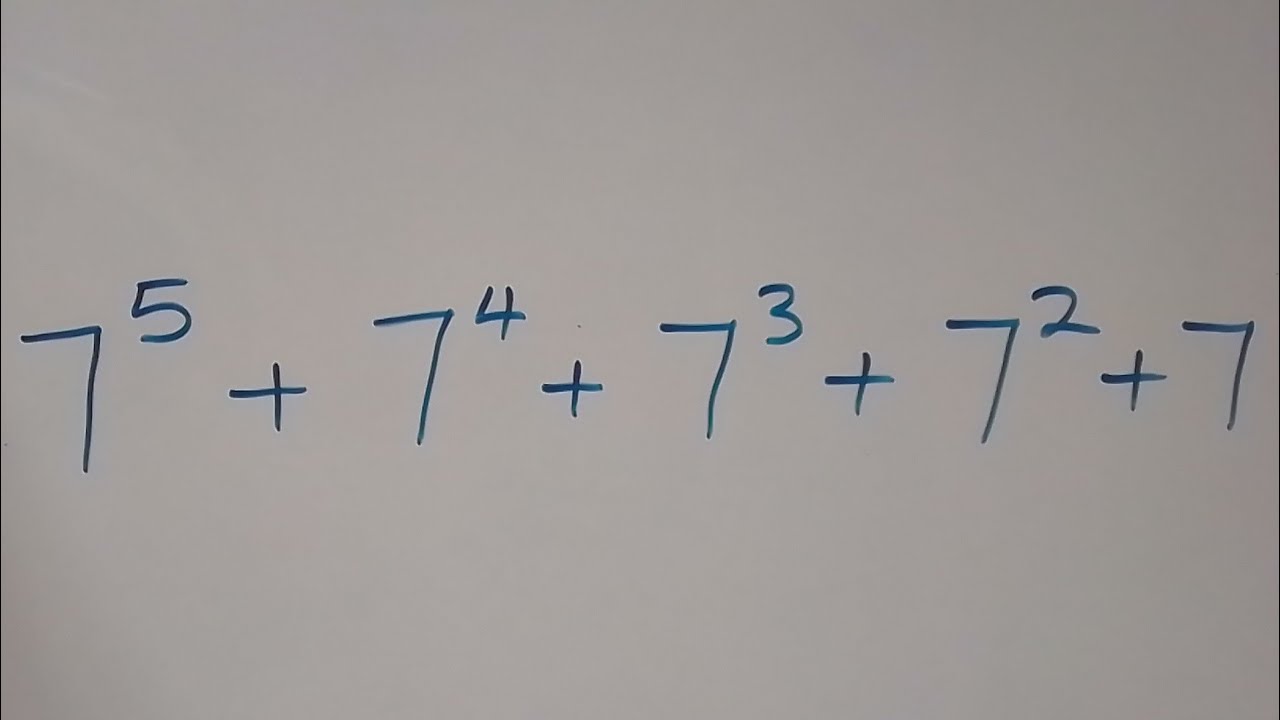 7⁵ + 7⁴ + 7³ + 7² + 7